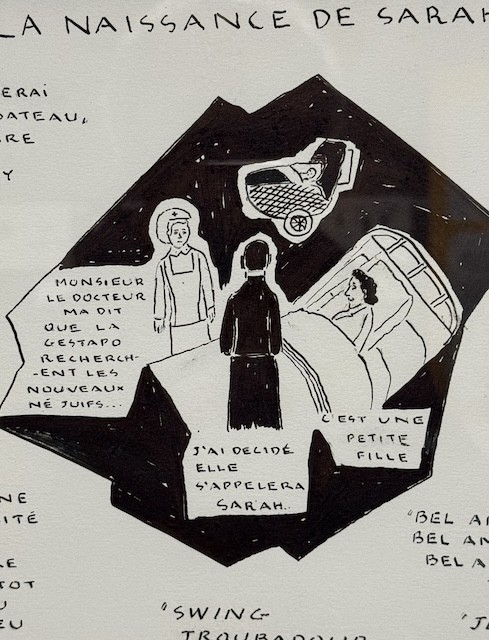 LA NAISSANCE DE SARAH
ERAI
BATEAU,
RE
Y
MONSIEUR
LE DOCTEUR
MA DIT
QUE LA
GESTAPO
RECHERCH-
-ENT LES
NOUVEAUX
NÉ JUIFS...
C'EST UNE
PETITE
FILLE
J'AI DECIDÉ
ELLE
S'APPELERA
SARAH..
NE
ITÉ
E
TOT
U
EU
"BEL A
BEL AN
BEL A
"SWING
TROUBADOUR
"J